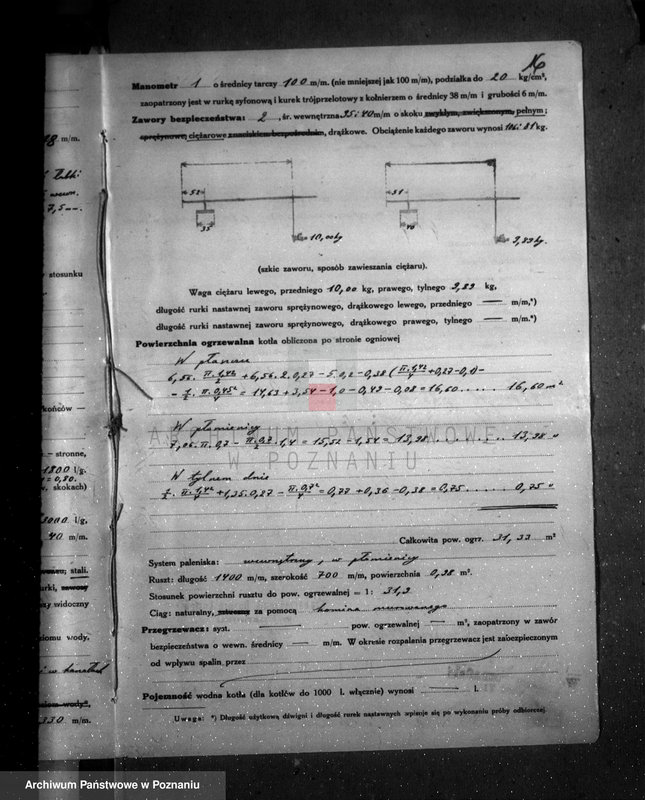 Manometr 1 o średnicy tarczy 100 m/m. (nie mniejszej jak 100 m/m), podziałka do 20 kg/cm²,
zaopatrzony jest w rurkę syfonową i kurek trójprzelotowy z kołnierzem o średnicy 38 m/m i grubości 6 m/m.
Zawory bezpieczeństwa: 2, śr. wewnętrzna 35 i 40 m/m o skoku zwykłym, zwiększonym, pełnym;
sprężynowe, ciężarowe z naciskiem bezpośrednim, drążkowe. Obciążenie każdego zaworu wynosi 106 i 81 kg.
52
51
35
40
10,00 kg
(szkic zaworu, sposób zawieszania ciężaru).
Waga ciężaru lewego, przedniego 10,00 kg, prawego, tylnego kg,
długość rurki nastawnej zaworu sprężynowego, drążkowego lewego, przedniego — m/m,*)
długość rurki nastawnej zaworu sprężynowego, drążkowego prawego, tylnego — m/m.*)
Powierzchnia ogrzewalna kotła obliczona po stronie ogniowej
W płaszczu
= 14,63 + 3,54 − 1,0 − 0,49 − 0,08 = 16,60 ..... 16,60 m²
W płomienicy
7,06. π. 0,7 − π.0,7/4 . 1,4 = 15,52 − 1,54 = 13,98 ........ 13,98 "
W tylnem dnie
= 0,77 + 0,36 − 0,38 = 0,75 ...... 0,75 "
Całkowita pow. ogrz. 31,33 m²
System paleniska: wewnętrzny, w płomienicy
Ruszt: długość 1400 m/m, szerokość 700 m/m, powierzchnia 0,98 m².
Stosunek powierzchni rusztu do pow. ogrzewalnej = 1: 31,9
Ciąg: naturalny, sztuczny za pomocą komina murowanego
Przegrzewacz: syst. — pow. ogrzewalnej — m², zaopatrzony w zawór
bezpieczeństwa o wewn. średnicy — m/m. W okresie rozpalania przegrzewacz jest zabezpieczonym
od wpływu spalin przez
Pojemność wodna kotła (dla kotłów do 1000 l. włącznie) wynosi — l.
Uwaga: *) Długość użytkową dźwigni i długość rurek nastawnych wpisuje się po wykonaniu próby odbiorczej.
ARCHIWUM PAŃSTWOWE
W POZNANIU
Archiwum Państwowe w Poznaniu